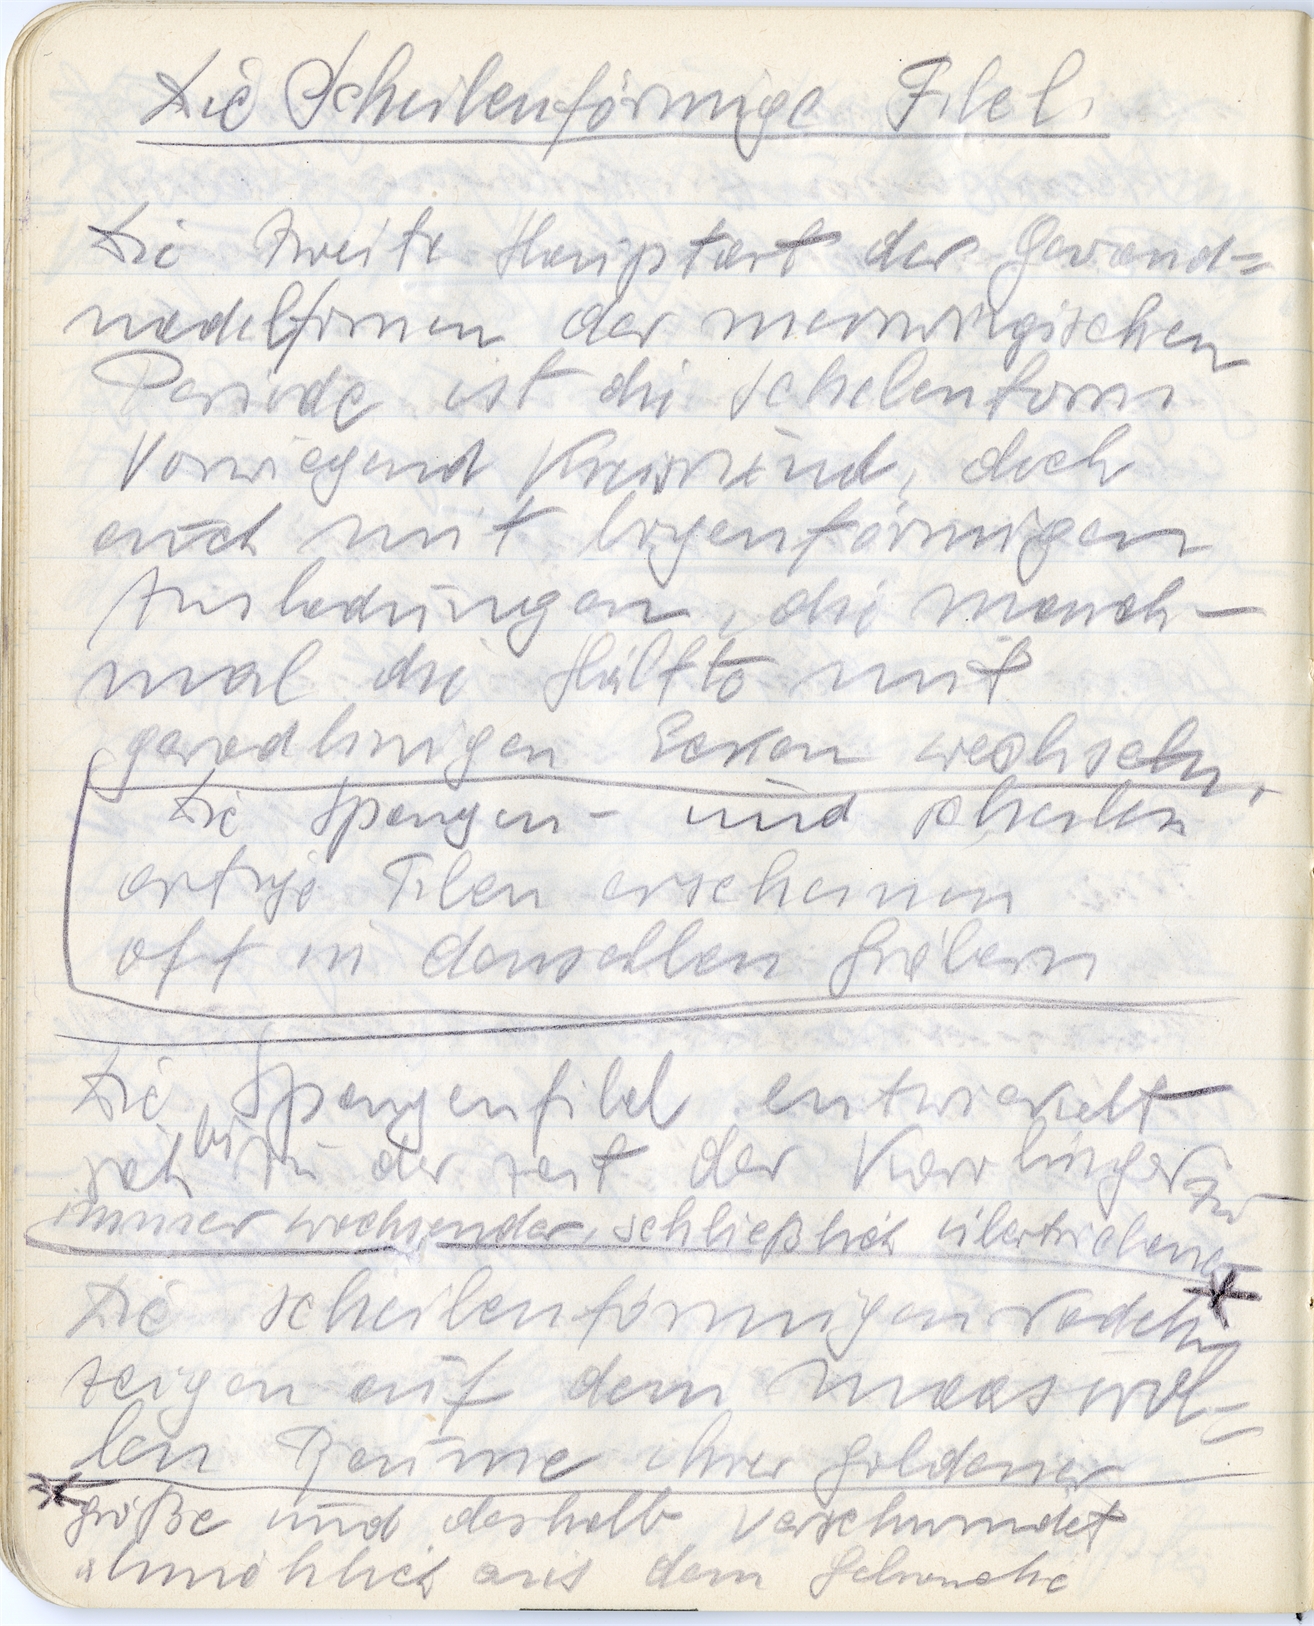 Die Scheibenförmige Fibel.
Die zweite Hauptart der Gewand=
nadelformen der merowingischen
Periode ist die Scheibenform
Vorwiegend Kreisrund, doch
auch mit bogenförmigen
Ausladungen, die manch-
mal die Hälfte mit
geradlinigen Ecken wechseln.
Die Spangen- und scheiben
artige Fibeln erscheinen
oft in denselben Gräbern
Die Spangenfibel entwickelt
sich bis zu der zeit der Karolinger zu
immer wachsender, schließlich übertriebener
Die scheibenförmigen Nadeln
zeigen auf dem maasvol=
len Raume ihrer goldener
größe und deshalb verschwindet
almählich aus dem Gebrauche